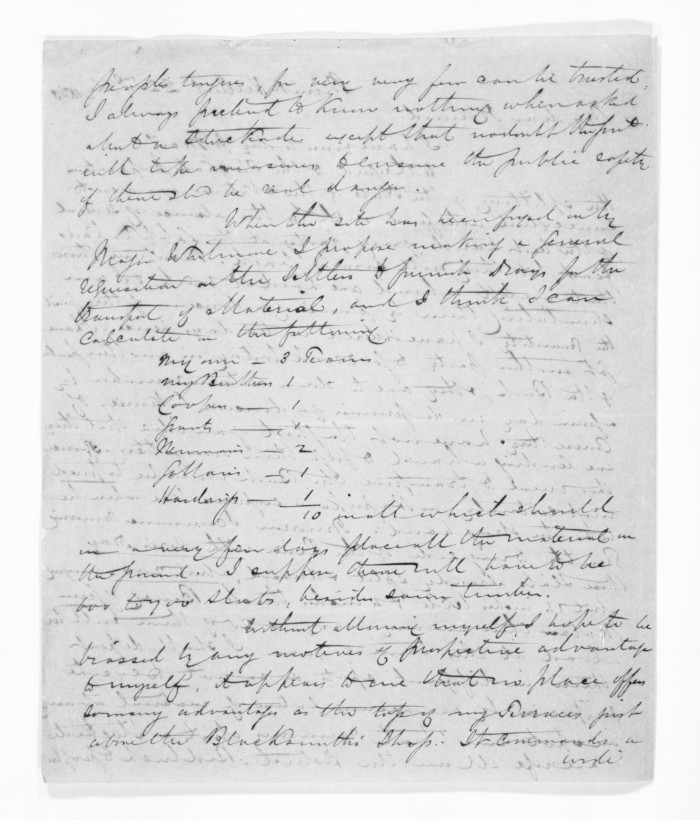 people's tongues for very very few can be trusted.
I always pretend to know nothing when asked
about a stockade except that no doubt the Govt
will take measures to ensure the public safety
if there shd be real danger.
When the site has been fixed on by
Major Whitmore I propose making a general
requisition on the Settlers to provide Drays for the
transport of Material, and I think I can
calculate on the following
My own – 3 Teams
My Brothers 1
Coopers — 1
Grants — 1
Newmans — 2
— 1
Hardings — 1
10 in all which should
in a very few days place all the material on
the ground. I suppose there will have to be
600 to 700 slabs, besides sawn timber.
Without allowing myself I hope to be
biassed by any motives of prospective advantage
to myself, it appears to me that no place offers
so many advantages as the top of my Terrace just
above the Blacksmith's Shop. It commands a
wide